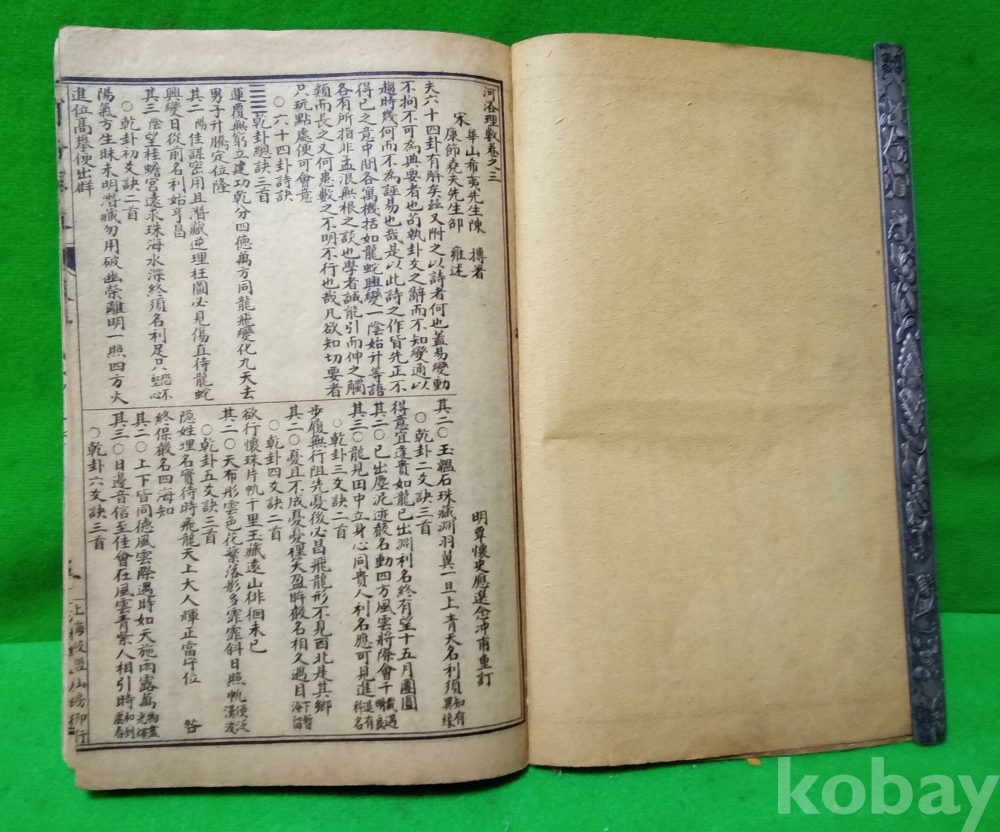 河洛理數卷之三
宋 華山希夷先生陳 摶著
康節堯夫先生邵 雍述
夫六十四卦有解矣茲又附之以詩者何也蓋易變動
不拘不可為典要者也苟執卦爻之辭而不知變通以
趨時幾何而不為誣易也哉是以此詩之作皆先正不
得已之意中間各寓機括如龍蛇興變一陰始升等語
各有所指非孟浪無根之談也學者誠能引而伸之觸
類而長之又何患數之不明不行也哉凡欲知切要者
只玩點處便可會意
○六十四卦詩訣
☰☰乾卦總訣三首
運覆無窮立建功乾分四德萬方同龍飛變化九天去
男子升騰定位隆
其二陽佳謀密用且潛藏逆理枉圖必見傷直待龍蛇
興變日從前名利始亨昌
其三陰望桂蟾宮遠求珠海水深終須名利足只恐心不
○乾卦初爻訣二首
陽氣方生昧未明潛藏勿用破幽榮離明一照四方火
進位高攀便出群
明覃懷史應選念沖甫重訂
其二○玉韞石珠藏淵羽翼一旦上青天名利須知有異緣
○乾卦二爻訣三首
得意宜逢貴如龍已出淵利名終有望十五月團圓
其二○已出塵泥迹聲名動四方風雲將際會千載遇明良
其三○龍見田中立身心同貴人利名應可見進退有科名
○乾卦三爻訣二首
步履無行阻先憂後必昌飛龍形不見西北是其鄉
其二○憂且不成憂憂裡笑盈眸聲名相久遇目下暫淹留
○乾卦四爻訣二首
欲行懷珠片帆千里玉藏遠山徘徊未已
其二○天布彤雲色花繁落影多霏霏斜日照帆
○乾卦五爻訣三首
隱姓埋名實待時飛龍天上大人輝正當守位
終保聲名四海知
其二○上下皆同德風雲際遇時如天施雨露萬物盡光輝
其三○日邊音信至佳會在風雲青紫人相引時
○乾卦六爻訣三首
上海
仙
行
kobay